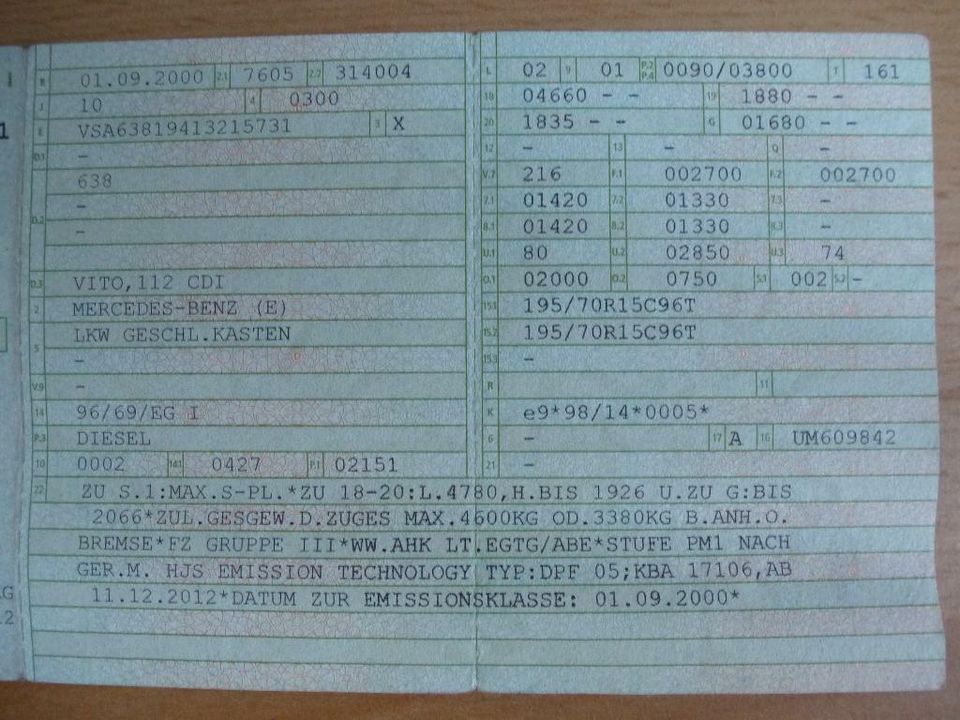 B 01.09.2000 2.1 7605 2.2 314004
J 10 4 0300
E VSA63819413215731 3 X
D.1 -
638
D.2 -
-
D.3 VITO,112 CDI
2 MERCEDES-BENZ (E)
5 LKW GESCHL.KASTEN
-
V.9 -
14 96/69/EG I
P.3 DIESEL
10 0002 14.1 0427 P.1 02151
L 02 9 01 P.2 P.4 0090/03800 T 161
18 04660 - - 19 1880 - -
20 1835 - - G 01680 - -
12 - 13 - Q -
V.7 216 F.1 002700 F.2 002700
7.1 01420 7.2 01330 7.3 -
8.1 01420 8.2 01330 8.3 -
U.1 80 U.2 02850 U.3 74
O.1 02000 O.2 0750 S.1 002 S.2 -
15.1 195/70R15C96T
15.2 195/70R15C96T
15.3 -
R 11
K e9*98/14*0005*
6 - 17 A 16 UM609842
21 -
22 ZU S.1:MAX.S-PL.*ZU 18-20:L.4780,H.BIS 1926 U.ZU G:BIS
2066*ZUL.GESGEW.D.ZUGES MAX.4600KG OD.3380KG B.ANH.O.
BREMSE*FZ GRUPPE III*WW.AHK LT.EGTG/ABE*STUFE PM1 NACH
GER.M. HJS EMISSION TECHNOLOGY TYP:DPF 05;KBA 17106,AB
11.12.2012*DATUM ZUR EMISSIONSKLASSE: 01.09.2000*